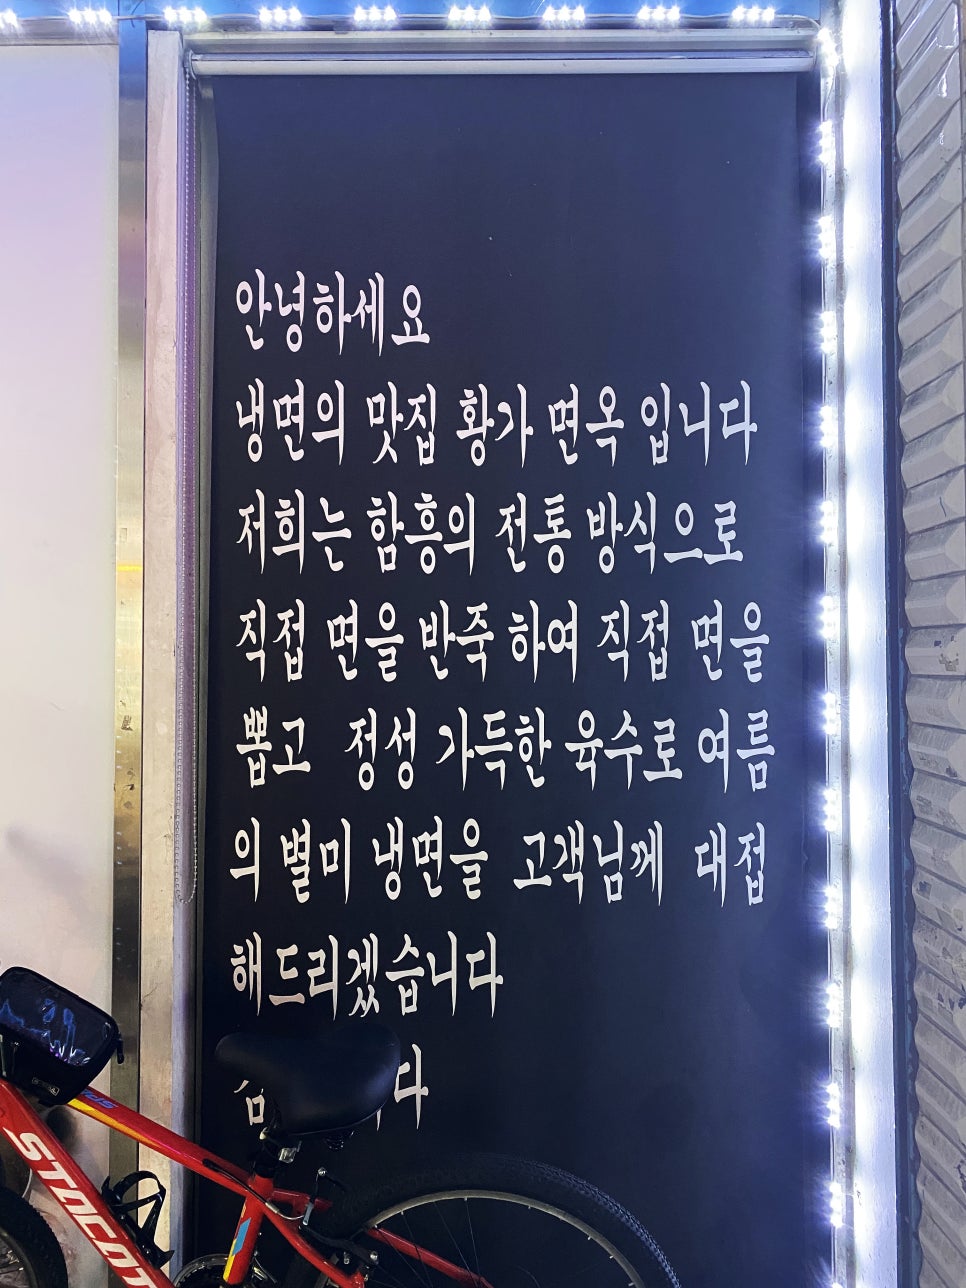 안녕하세요
냉면의 맛집 황가 면옥 입니다
저희는 함흥의 전통 방식으로
직접 면을 반죽 하여 직접 면을
뽑고 정성 가득한 육수로 여름
의 별미 냉면을 고객님께 대접
해드리겠습니다